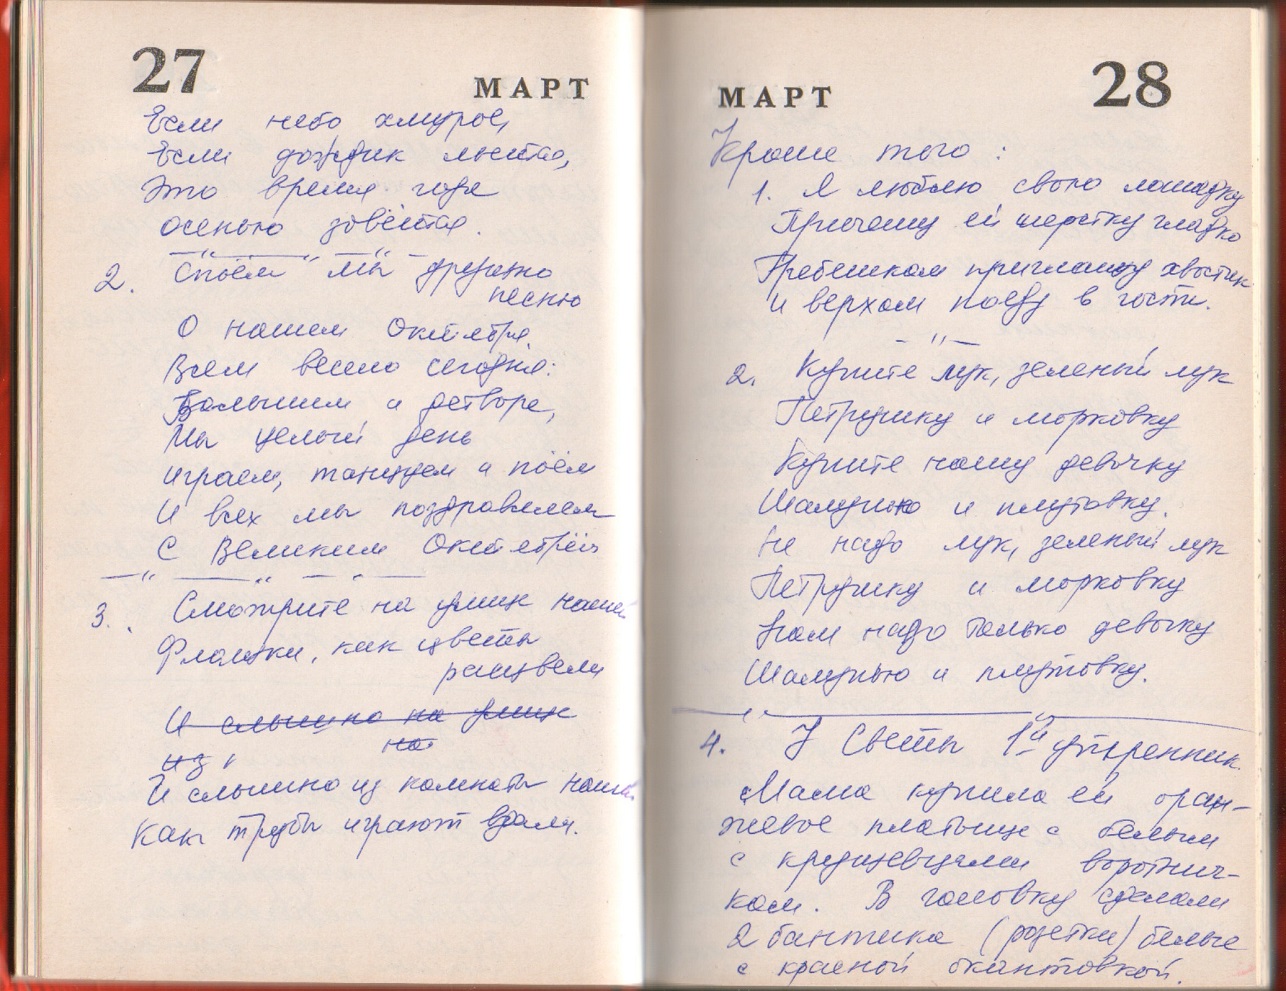 27
МАРТ
Если небо хмурое,
Если дождик льётся,
Это время года
осенью зовётся.
2. Споём мы дружно
песню
О нашем Октябре.
Всем весело сегодня:
Большим и детворе,
Мы целый день
играем, танцуем и поём
И всех мы поздравляем
С Великим Октябрём
3. Смотрите на улице нашей
Флажки, как цветы
расцвели
И слышно на улице
из, на
И слышно из комнаты нашей
Как трубы играют вдали.
МАРТ
28
Кроме того:
1. Я люблю свою лошадку
Причешу ей шерстку гладко
Гребешком приглажу хвостик
и верхом поеду в гости.
2. Купите лук, зеленый лук
Петрушку и морковку
Купите нашу девочку
Шалунью и плутовку.
Не надо лук, зеленый лук
Петрушку и морковку
Нам надо только девочку
Шалунью и плутовку.
4. У Светы 1й утренник.
Мама купила ей оран-
жевое платьице с белым
с кружевцами воротнич-
ком. В головку сделали
2 бантика (розетки) белые
с красной окантовкой.